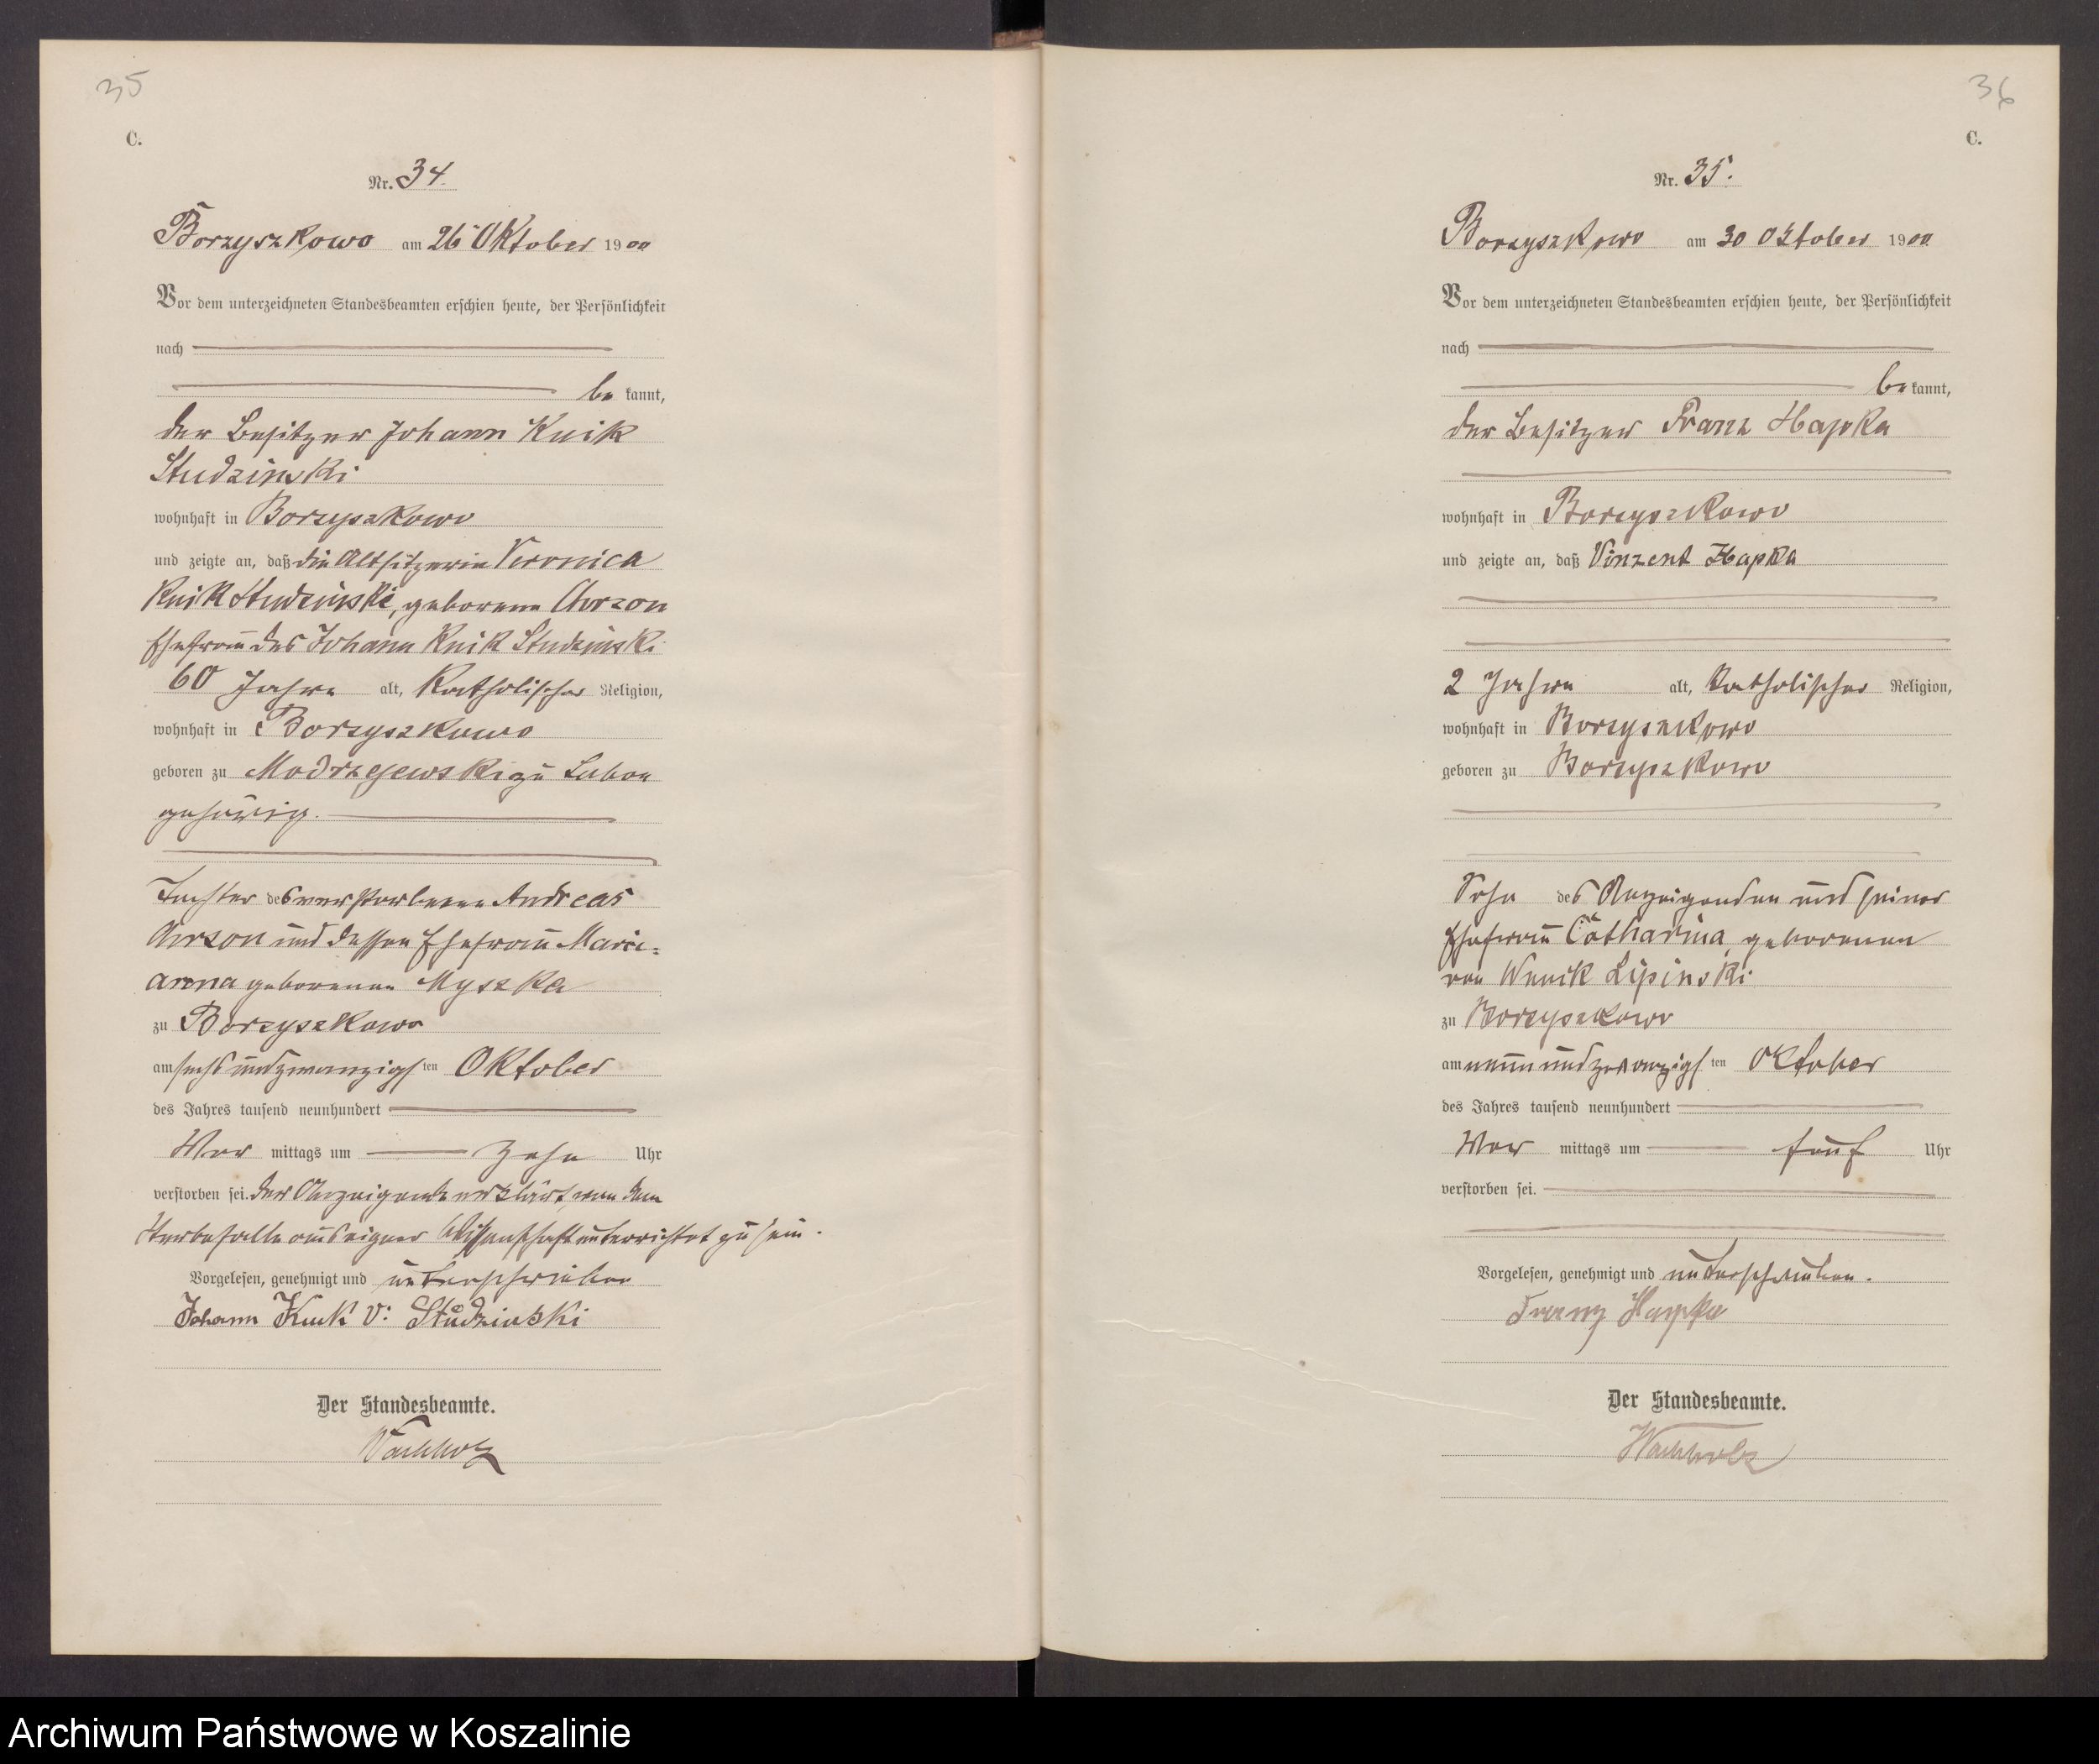 35
C.
Nr. 34.
Borzyszkowo am 26 Oktober 1900
Vor dem unterzeichneten Standesbeamten erschien heute, der Persönlichkeit
nach
be kannt,
der Besitzer Johann Kuik
Studzinski
wohnhaft in Borzyszkowo
und zeigte an, daß die Altsitzerin Veronica
Kuik Studzinski, geborene
Ehefrau des Johann Kuik Studzinski
60 Jahre alt, Katholischer Religion,
wohnhaft in Borzyszkowo
geboren zu Modrzejewski zu Lubon
gehörig.
Tochter des verstorbenen Andreas
und dessen Ehefrau Mari
anna geborenen Myszka
zu Borzyszkowo
am sechsundzwanzigsten Oktober
des Jahres tausend neunhundert
Vor mittags um zehn Uhr
verstorben sei. Der Anzeigende erklärt, von dem
Sterbefalle aus eigner Wissenschaft unterrichtet zu sein.
Vorgelesen, genehmigt und unterschrieben
Johann Kuik v: Studzinski
Der Standesbeamte.
Wachholz
36
C.
Nr. 35.
Borzyszkowo am 30 Oktober 1900
Vor dem unterzeichneten Standesbeamten erschien heute, der Persönlichkeit
nach
be kannt,
der Besitzer Franz Hapka
wohnhaft in Borzyszkowo
und zeigte an, daß Vinzent Hapka
2 Jahre alt, katholischer Religion,
wohnhaft in Borzyszkowo
geboren zu Borzyszkowo
Sohn des Anzeigenden und seiner
Ehefrau Catharina, geborenen
von Wnuk Lipinski
zu Borzyszkowo
am neunundzwanzigsten Oktober
des Jahres tausend neunhundert
Vor mittags um fünf Uhr
verstorben sei.
Vorgelesen, genehmigt und unterschrieben.
Franz Hapka
Der Standesbeamte.
Wachholz
Archiwum Państwowe w Koszalinie